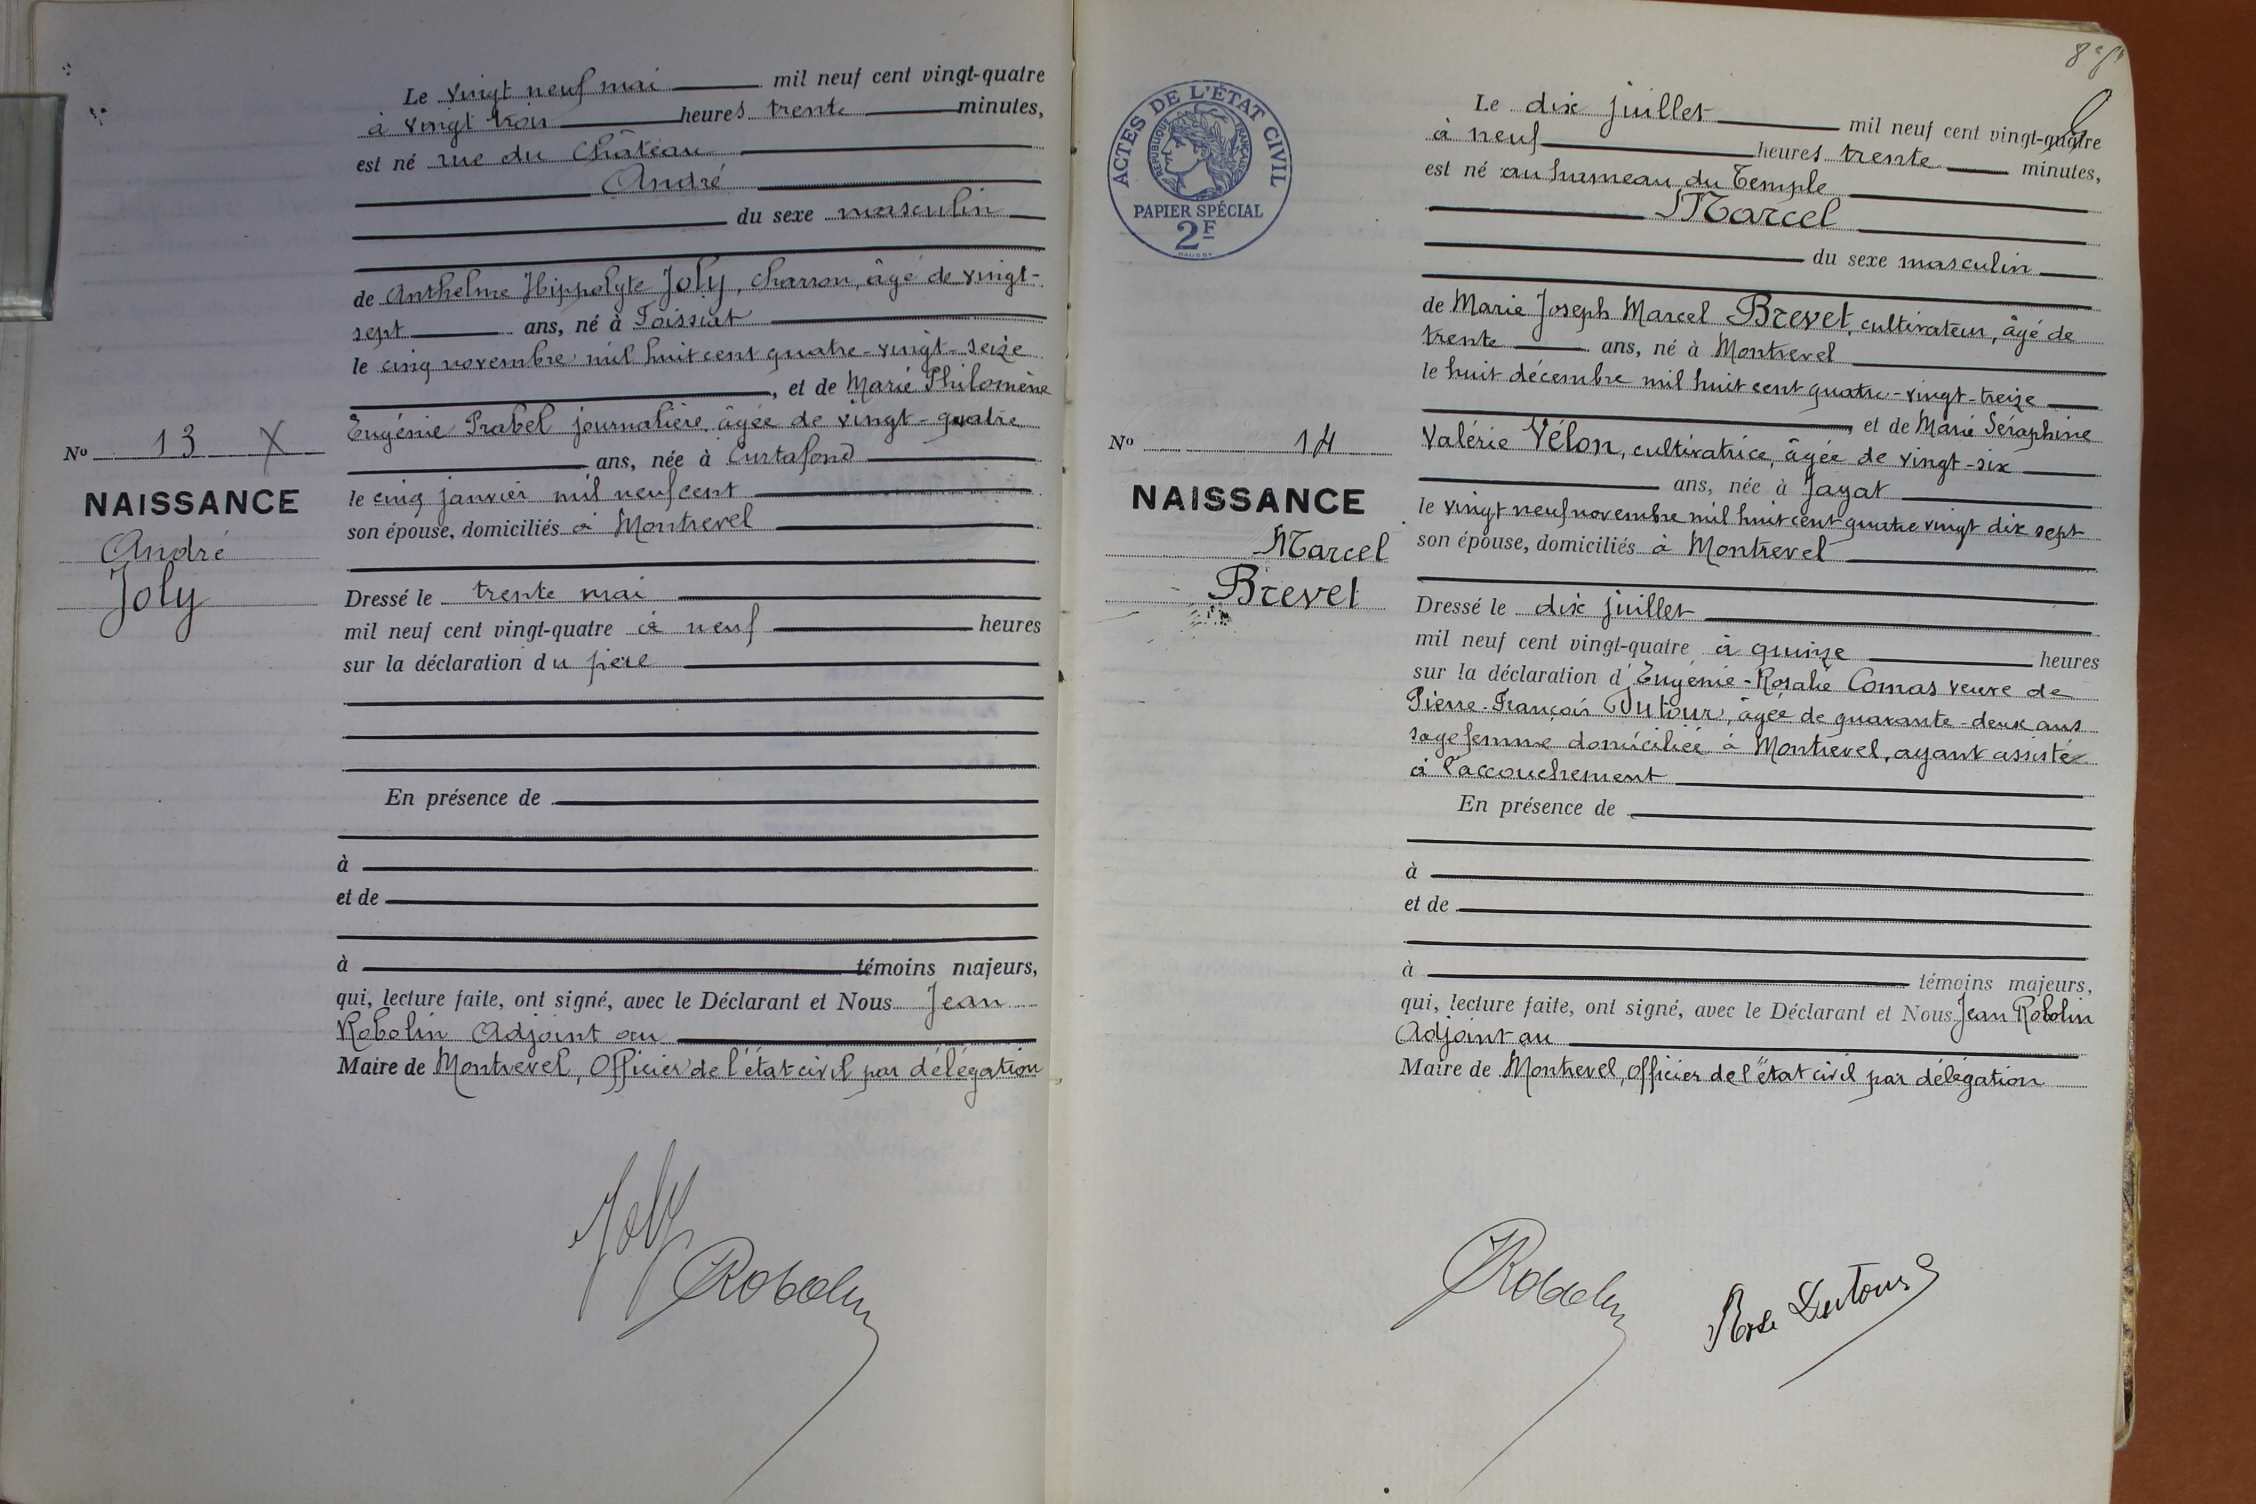 Le vingt neuf mai mil neuf cent vingt-quatre
à vingt trois heures trente minutes,
est né rue du Château
André
du sexe masculin
de Anthelme Hippolyte Joly, charron, âgé de vingt-
sept ans, né à Foissiat
le cinq novembre mil huit cent quatre-vingt-seize
, et de Marie Philomène
Eugénie Prabel journalière, âgée de vingt-quatre
ans, née à Curtafond
le cinq janvier mil neuf cent
son épouse, domiciliés à Montrevel
Nº 13 X
NAISSANCE
André
Joly
Dressé le trente mai
mil neuf cent vingt-quatre à neuf heures
sur la déclaration du père
En présence de
à
et de
à témoins majeurs,
qui, lecture faite, ont signé, avec le Déclarant et Nous Jean
Robolin Adjoint au
Maire de Montrevel, Officier de l'état civil par délégation
Joly
Robolin
ACTES DE L'ÉTAT CIVIL
RÉPUBLIQUE FRANÇAISE
PAPIER SPÉCIAL
2F
Le dix juillet mil neuf cent vingt-quatre
à neuf heures trente minutes,
est né au hameau du Temple
Marcel
du sexe masculin
de Marie Joseph Marcel Brevet, cultivateur, âgé de
trente ans, né à Montrevel
le huit décembre mil huit cent quatre-vingt-treize
, et de Marie Séraphine
Valérie Vélon, cultivatrice, âgée de vingt-six
ans, née à Jayat
le vingt neuf novembre mil huit cent quatre vingt dix sept
son épouse, domiciliés à Montrevel
Nº 14
NAISSANCE
Marcel
Brevet
Dressé le dix juillet
mil neuf cent vingt-quatre à quinze heures
sur la déclaration d'Eugénie-Rosalie Comas veuve de
Pierre-François Dutour, âgée de quarante-deux ans
sage femme domiciliée à Montrevel, ayant assisté
à l'accouchement
En présence de
à
et de
à témoins majeurs,
qui, lecture faite, ont signé, avec le Déclarant et Nous Jean Robolin
Adjoint au
Maire de Montrevel, Officier de l'état civil par délégation
Robolin
Rose Dutour